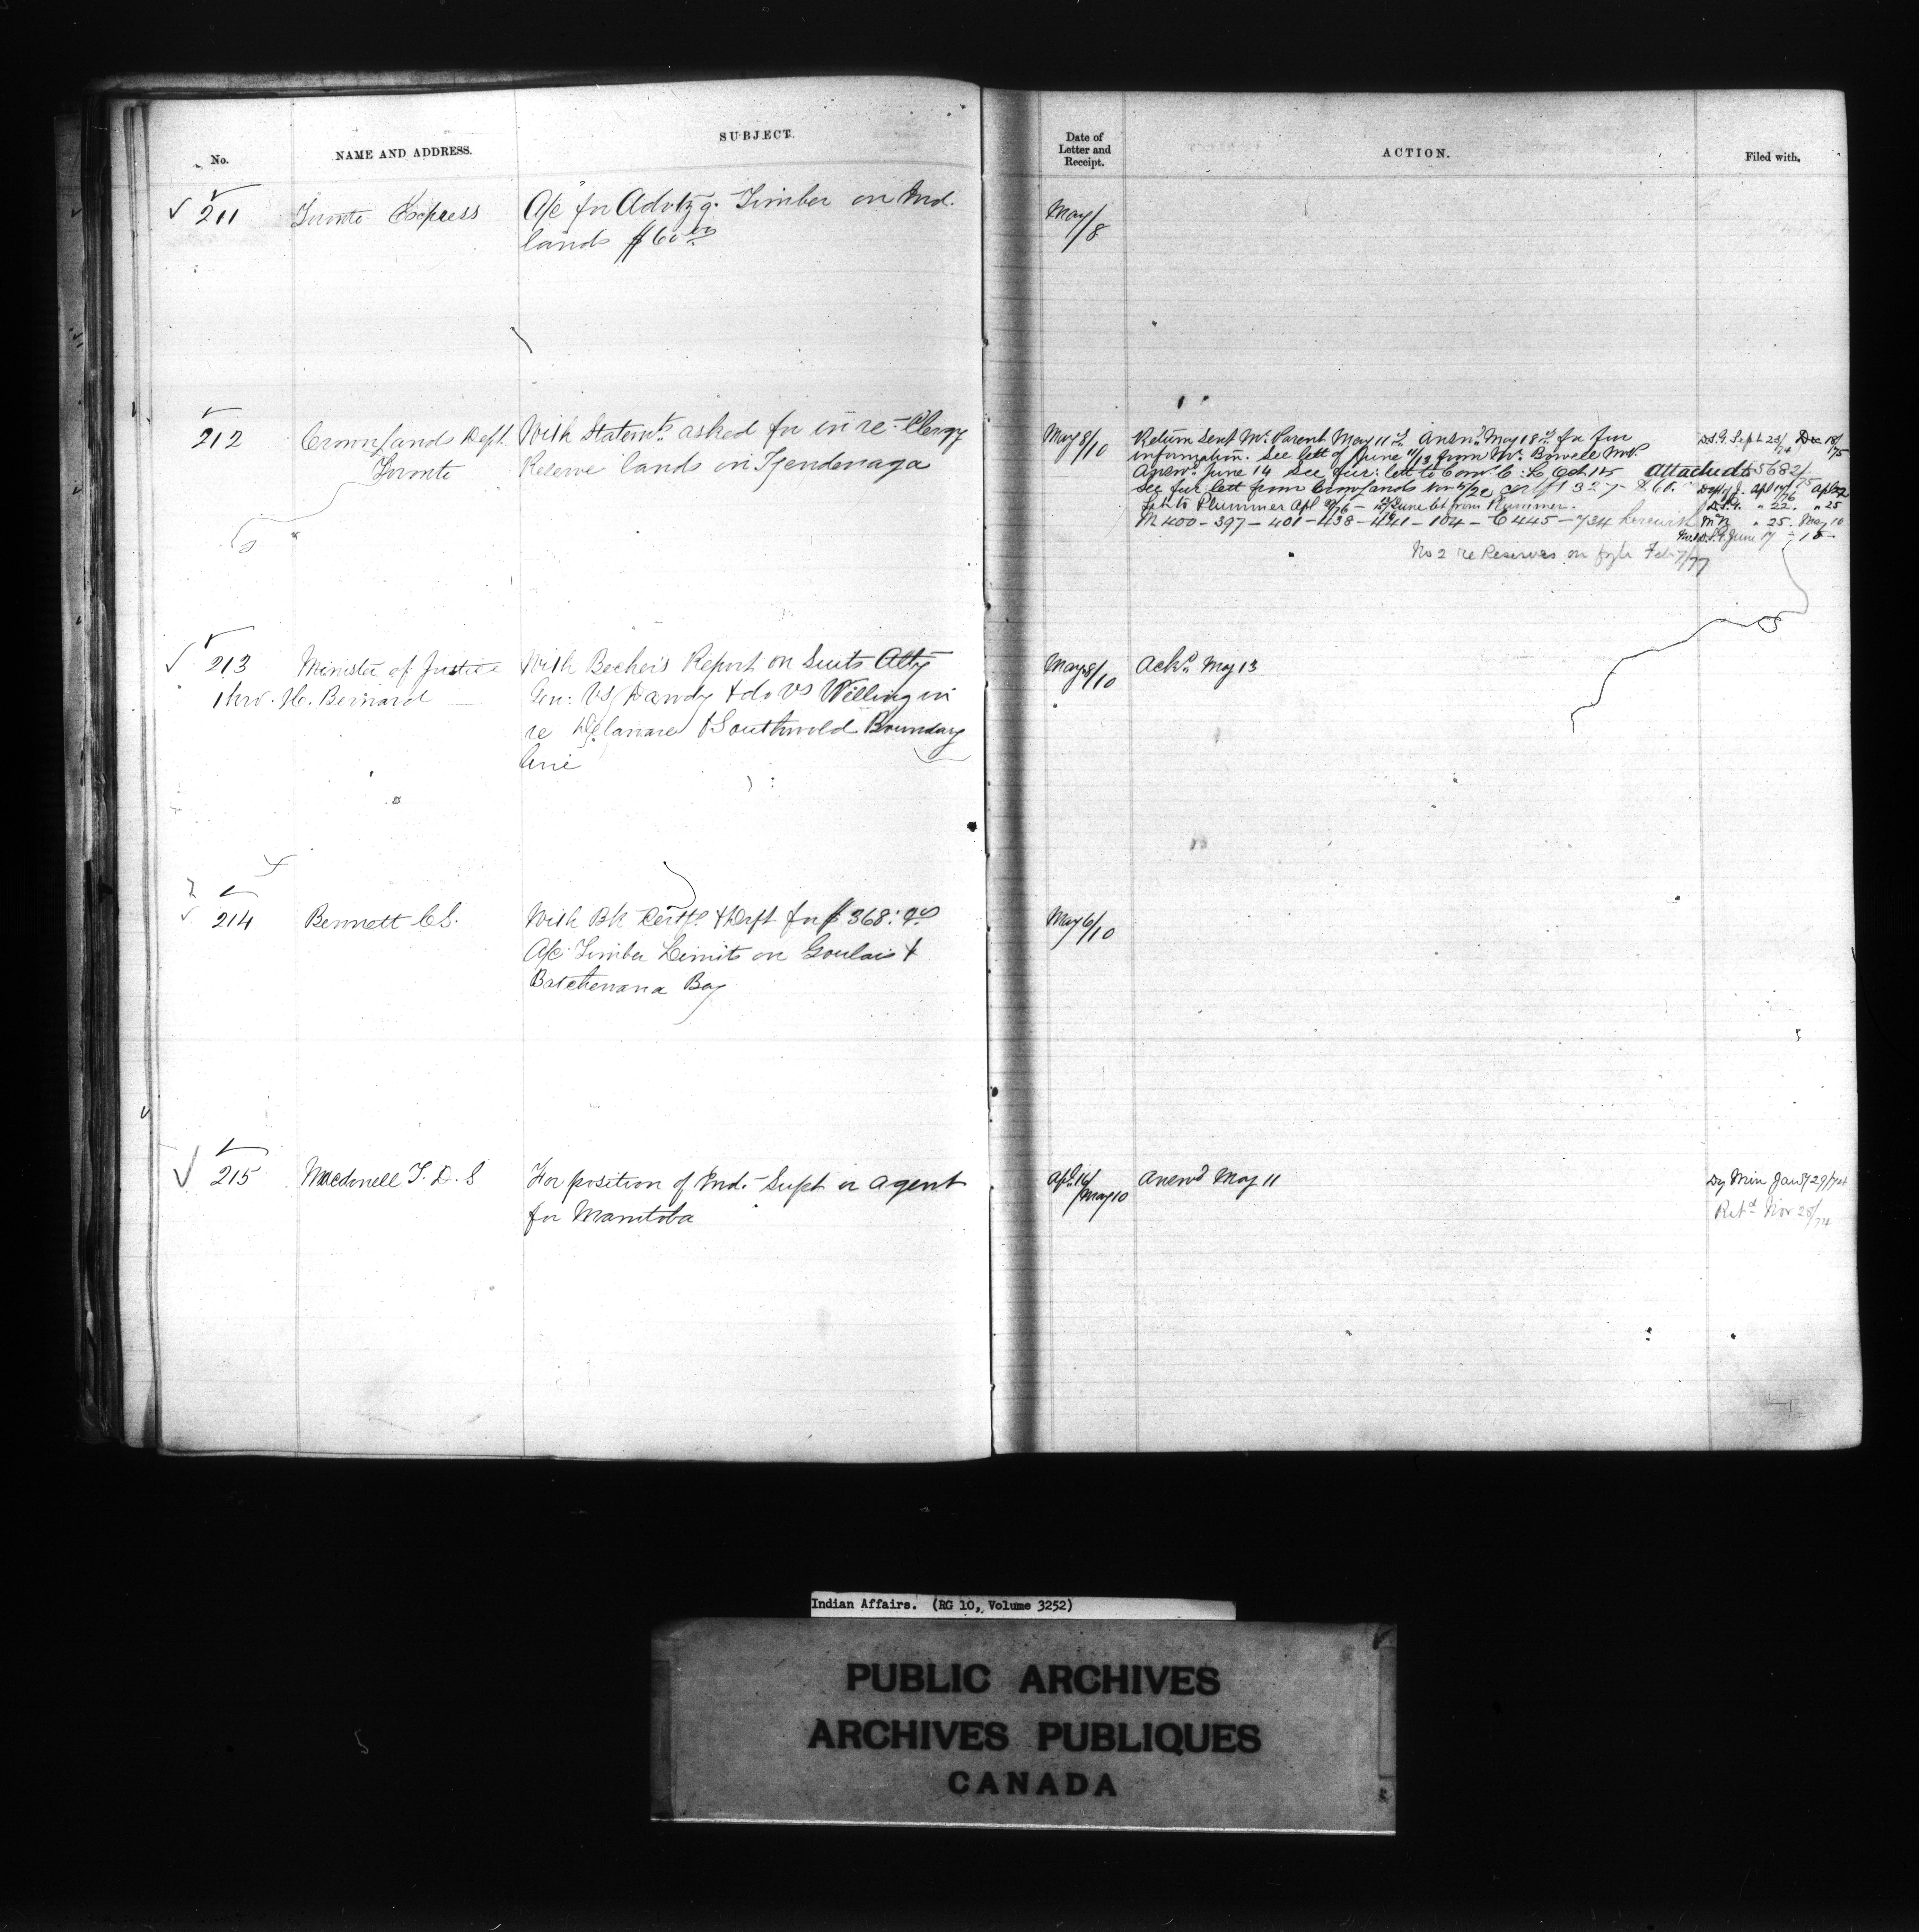 No.
NAME AND ADDRESS.
SUBJECT.
Date of
Letter and
Receipt.
ACTION.
Filed with.
211
Toronto Express
A/c for Advtzg. Timber on Ind.
lands $60.00
May/8
212
Crown Lands Dept.
Toronto
With Statemts asked for in re - Clergy
Reserve lands in Tyendenaga
May 8/10
Return sent Mr. Parent May 11th. Answd. May 18th. for fur
information. See lett of June 11/13 from Mr. Bowell M.P.
Answd. June 14 See fur: lett to Com. C. L. Oct 14
See fur lett from Crown Lands Nov
Let to Plummer Apl 76 - June let from Plummer.
M 400 - 397 - 401 - 438 - 441 - 104 - C 445 - 734 herewith
No 2 re Reserves on fyle Feb 7/77
D.S.G. Sept 23/74 Dec 18/75
Attached to 5682/75
Dept of J. Apl 76 Apl 22
D.S.G. " 22. " 25
" 25. May 10
D.S.G. June 17 - 18 -
213
Minister of Justice
thro. H. Bernard
With Becher's Report on Suits Atty
Gen: vs Dandy & do vs Willing in
re Delaware & Southwold Boundary
line
May 8/10
Ackd. May 13
214
Bennett C S.
With Bk Certfe. & Dept for $368:
A/c Timber Limits on Goulais &
Batchewana Bay
May 6/10
215
Macdonell T. D. S
For position of Ind. Supt or agent
for Manitoba
Apl. 16/May 10
Answd May 11
Dy Min Jany 29/74
Retd Nov 28/74
Indian Affairs. (RG 10, Volume 3252)
PUBLIC ARCHIVES
ARCHIVES PUBLIQUES
CANADA